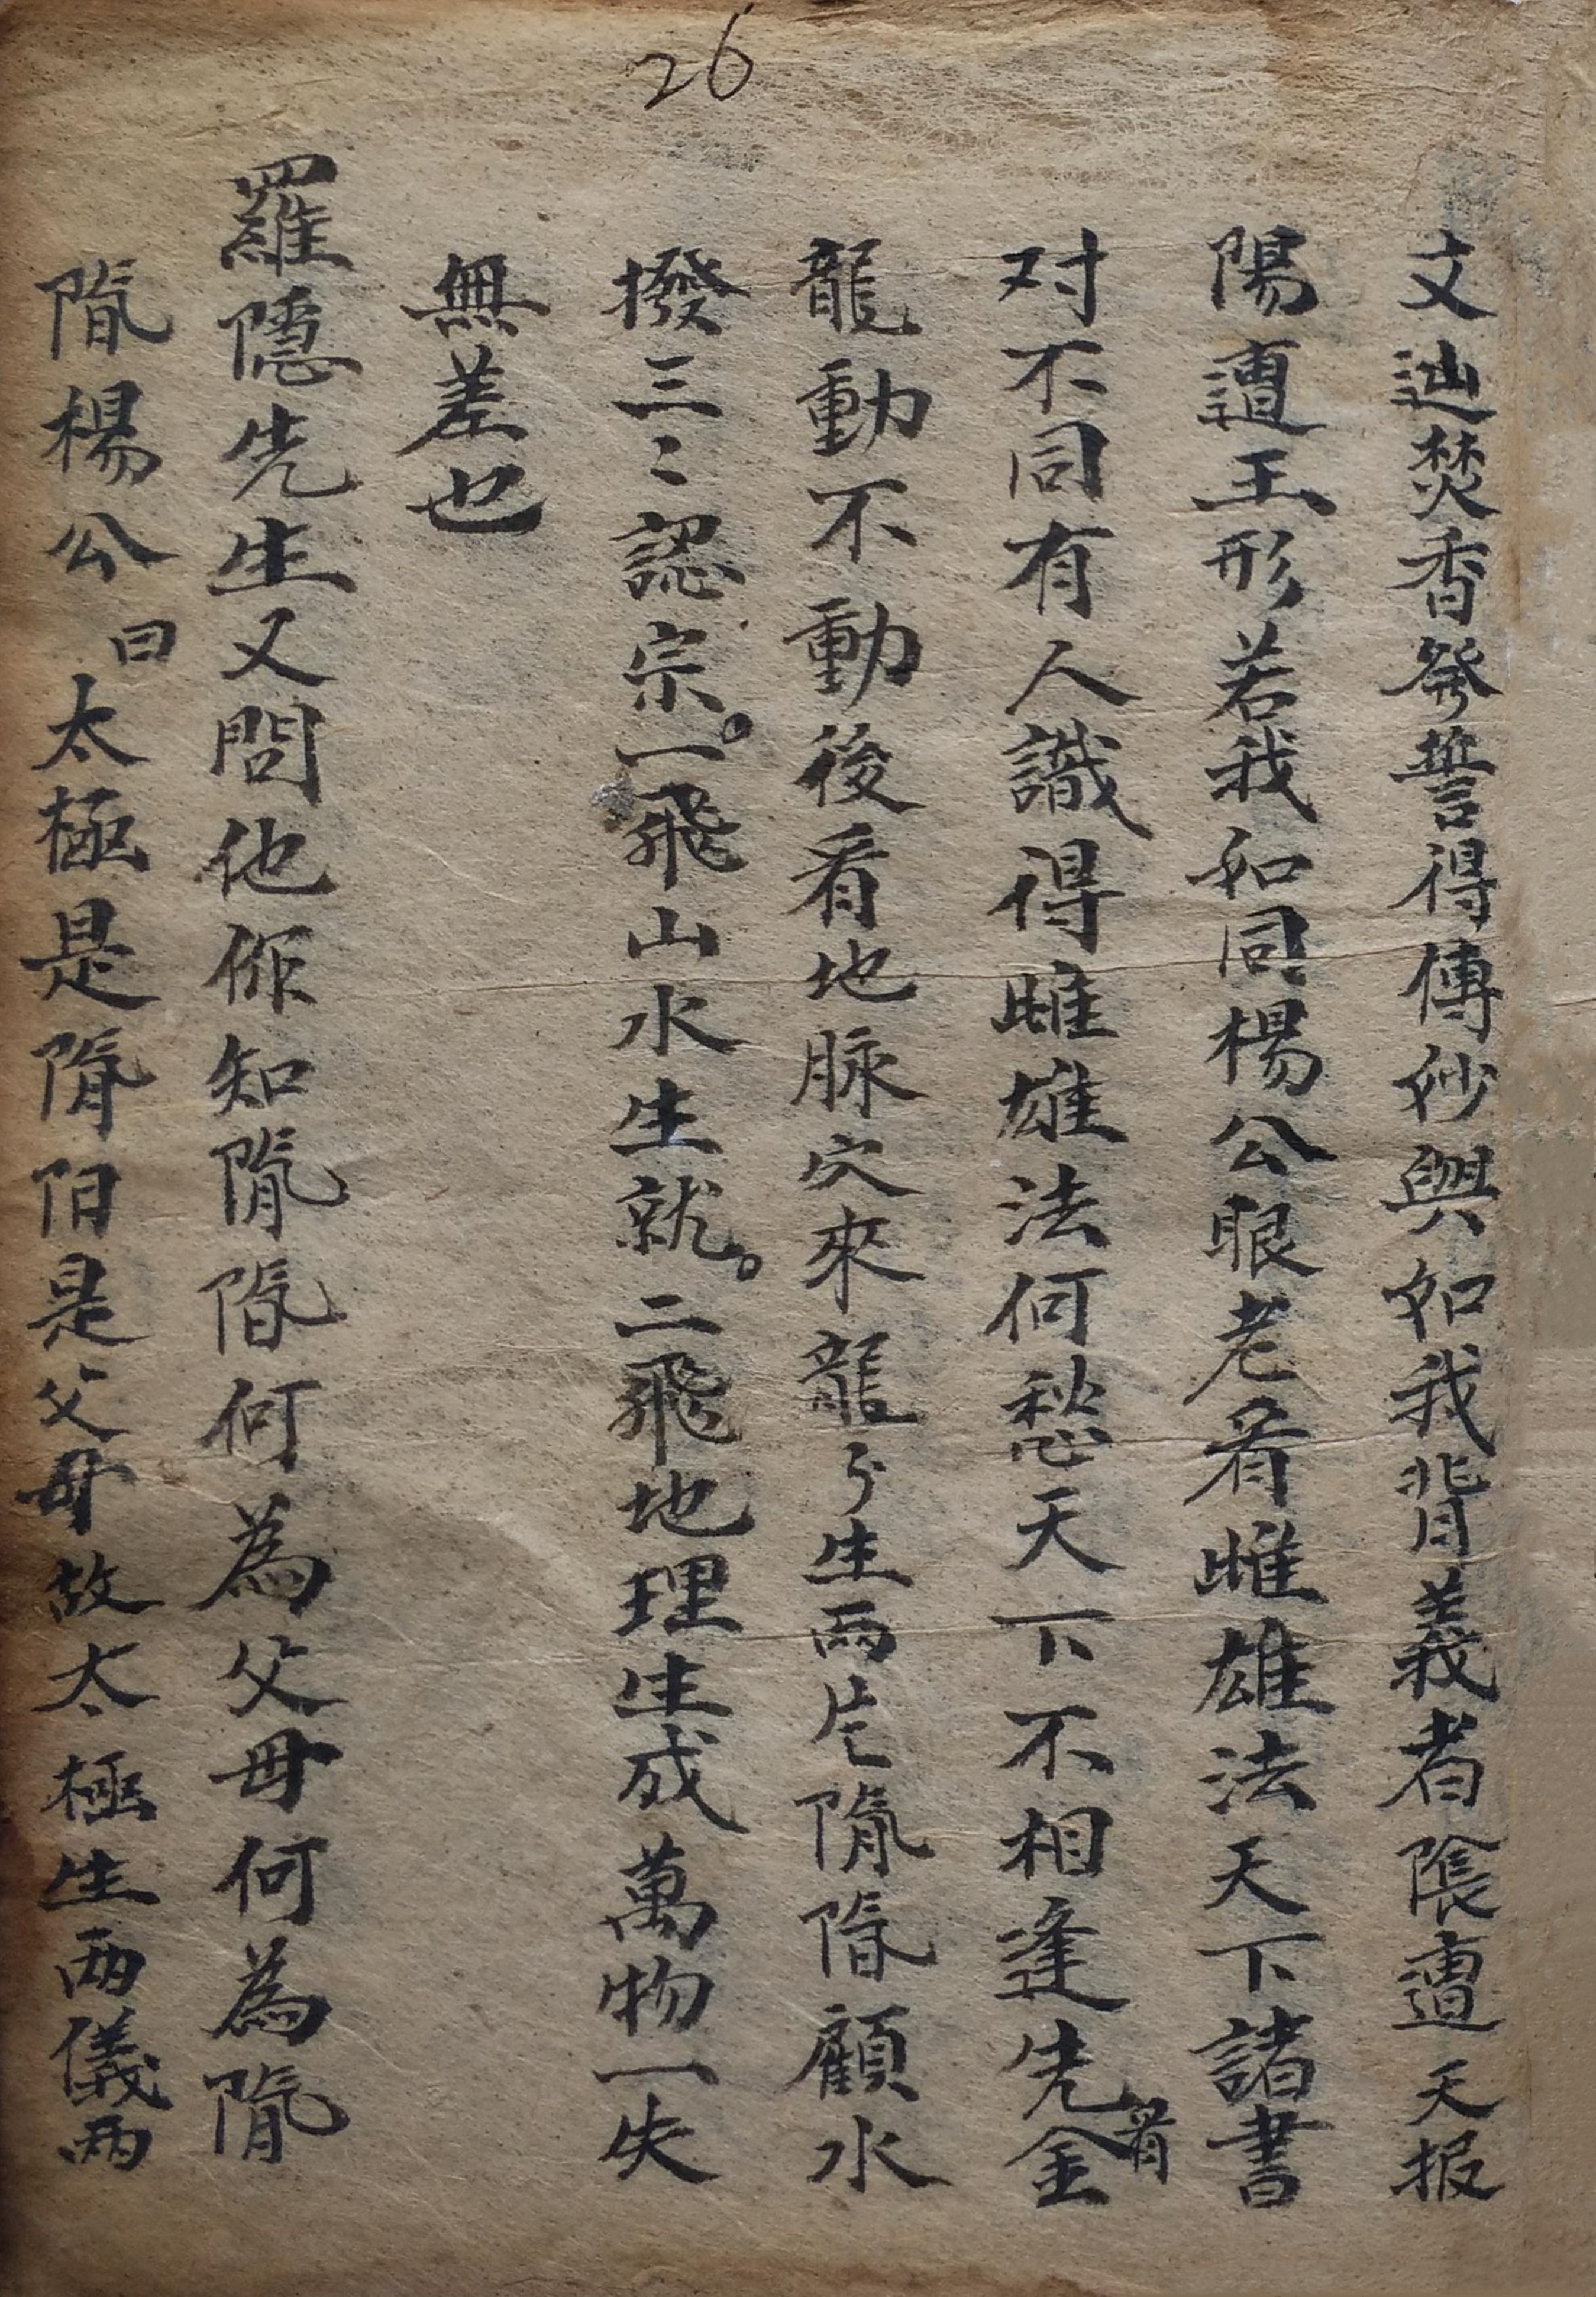 26
文辿焚香發誓得傳妙與如我背義者陰遭天报
陽遭王形若我如同楊公眼老看雌雄法天下諸書
对不同有人識得雌雄法何愁天下不相逢先看金
龍動不動後看地脉穴來龍分生両片陰陽顧水
撥三〻認宗。一飛山水生就。二飛地理生成萬物一失
無差也
羅隱先生又問他你知陰陽何為父母何為陰
陽楊公曰太極是陰阳是父母故太極生両儀両